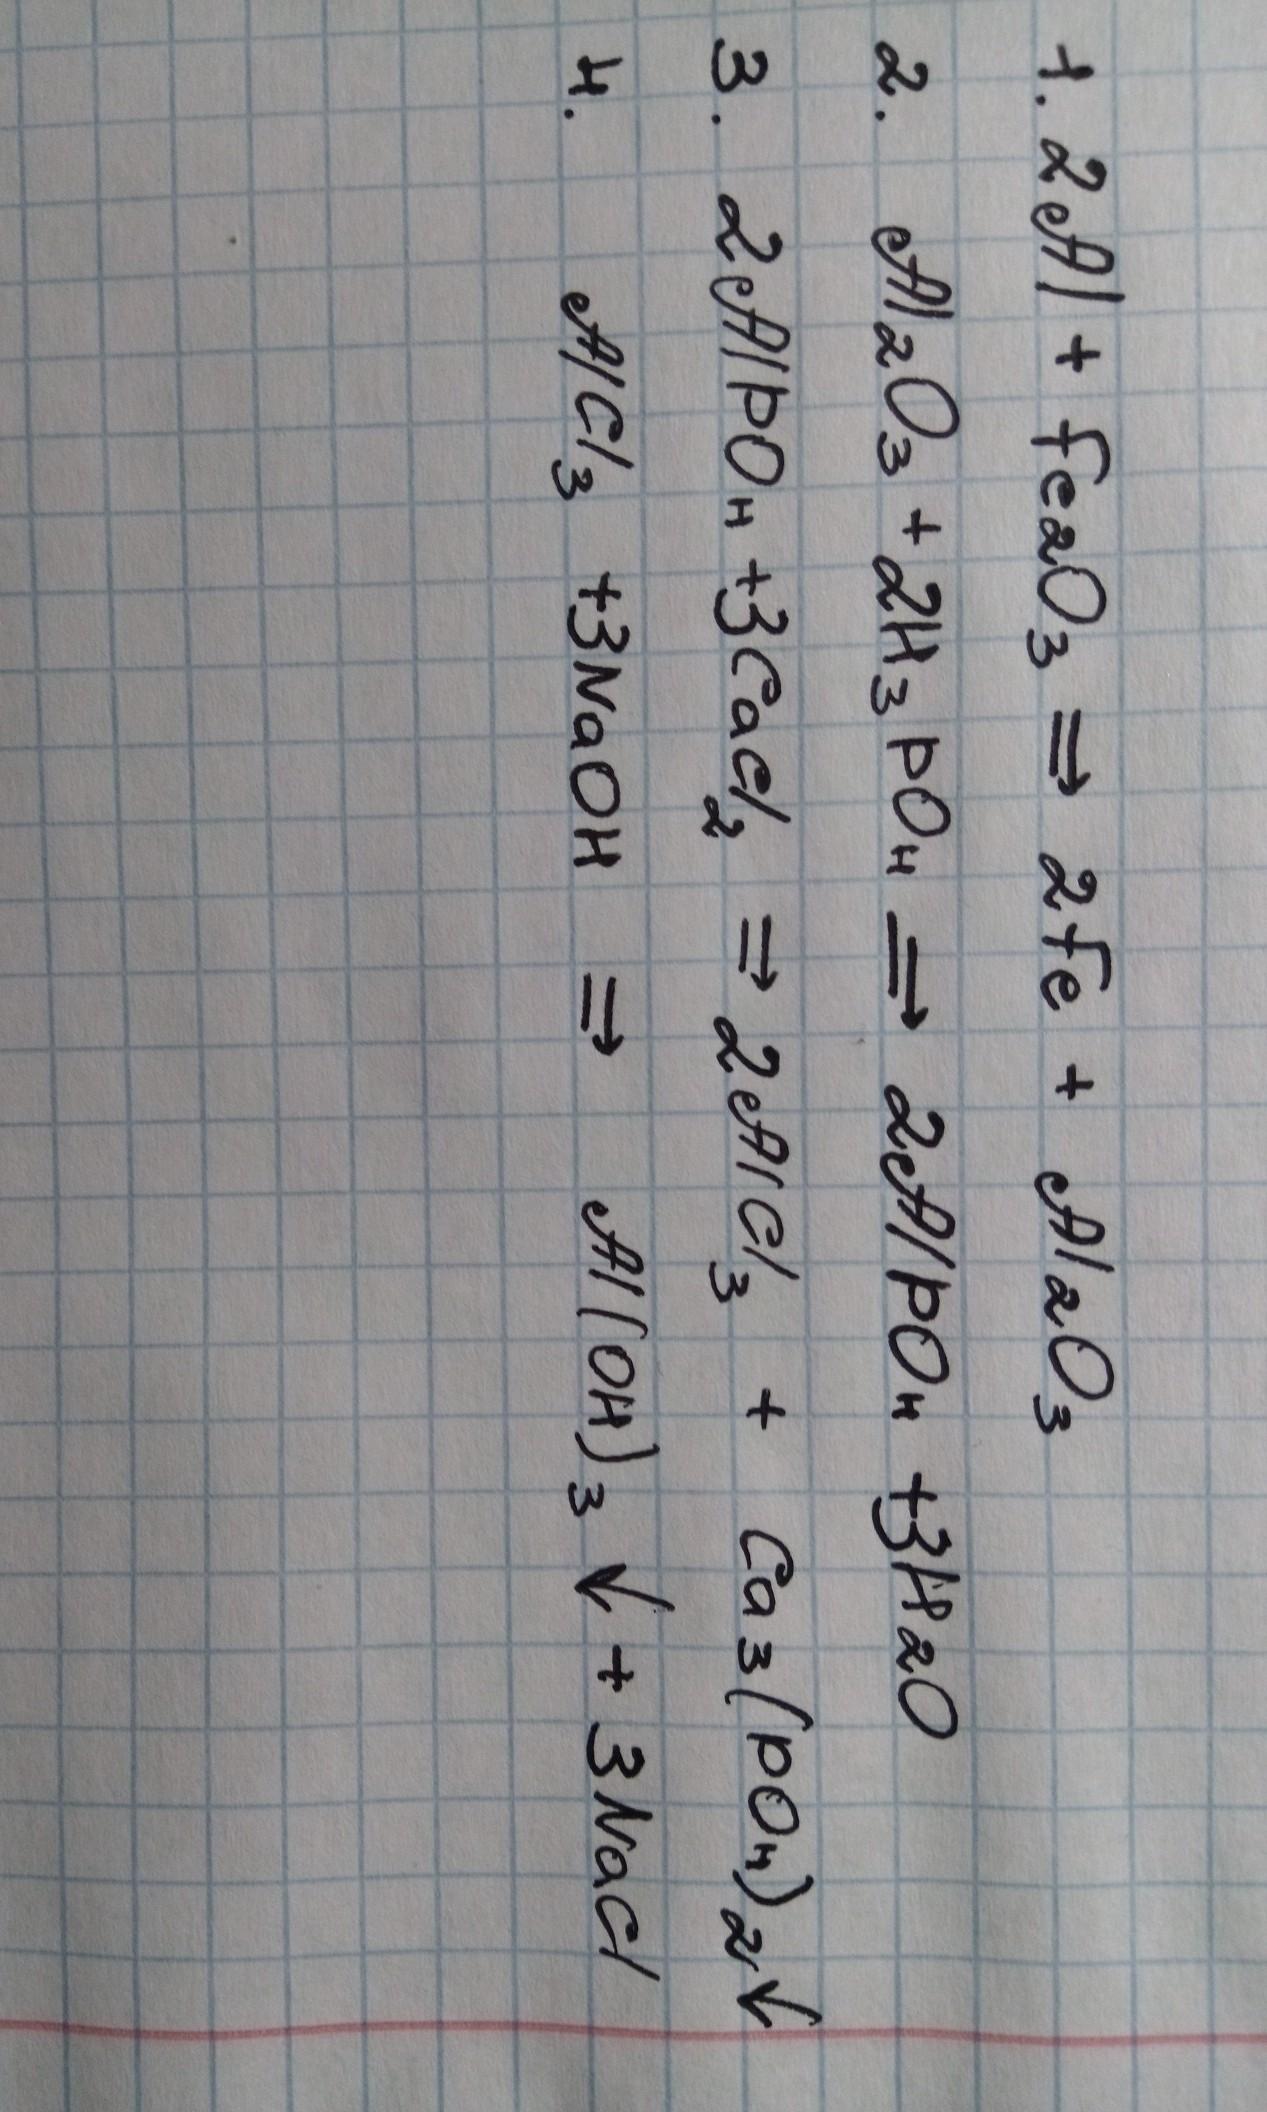 1. 2Al + Fe₂O₃ ⇒ 2Fe + Al₂O₃
2. Al₂O₃ + 2H₃PO₄ ⇒ 2AlPO₄ + 3H₂O
3. 2AlPO₄ + 3CaCl₂ ⇒ 2AlCl₃ + Ca₃(PO₄)₂↓
4. AlCl₃ + 3NaOH ⇒ Al(OH)₃↓ + 3NaCl